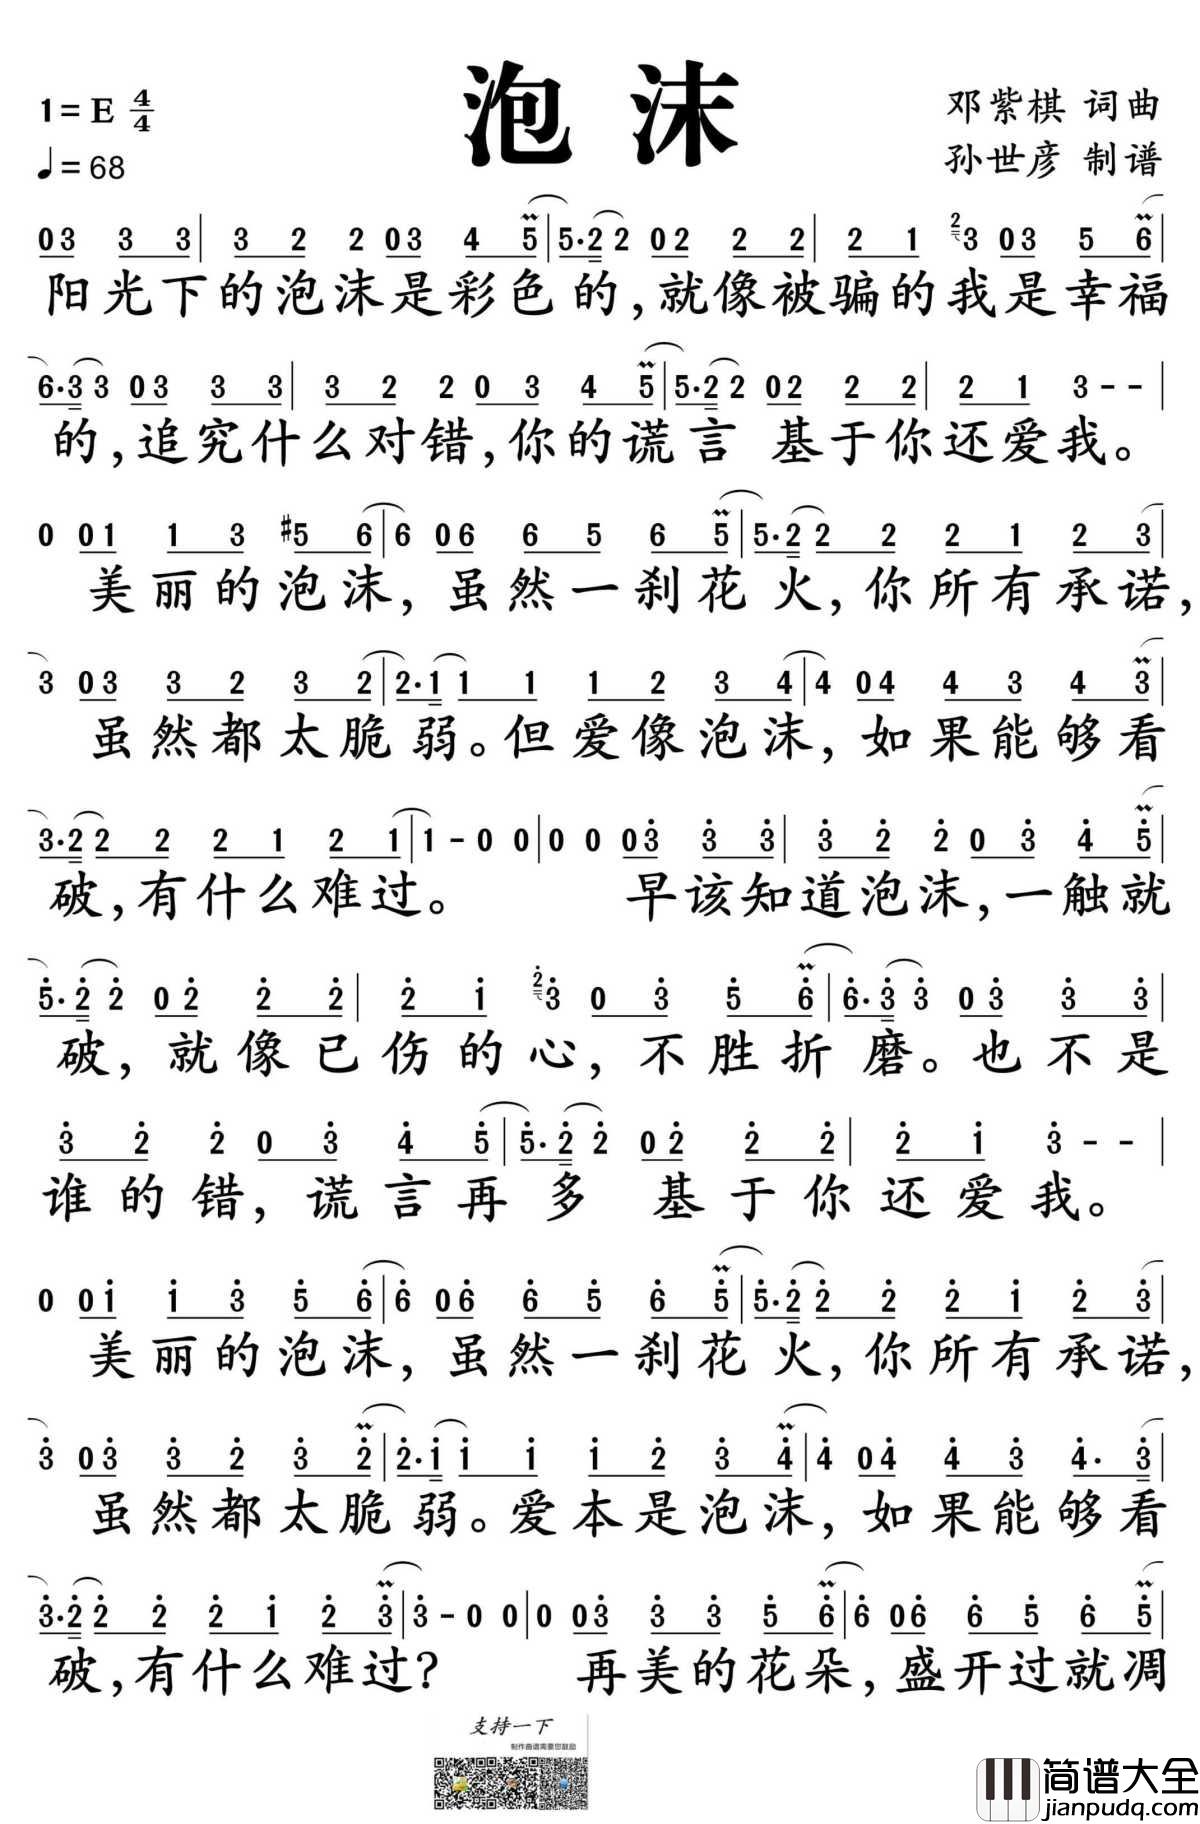 泡沫
1=E 4/4
邓紫棋 词曲
♩=68
孙世彦 制谱
03 3 3| 3 2 2 03 4 5| 5·2 2 02 2 2| 2 1 2 3 03 5 6
阳光下的泡沫是彩色的,就像被骗的我是幸福
6·3 3 03 3 3| 3 2 2 0 3 4 5| 5·2 2 02 2 2| 2 1 3--|
的,追究什么对错,你的谎言 基于你还爱我。
0 01 1 3 #5 6| 6 06 6 5 6 5| 5·2 2 2 2 1 2 3|
美丽的泡沫,虽然一刹花火,你所有承诺,
3 03 3 2 3 2| 2·1 1 1 1 2 3 4| 4 04 4 3 4 3|
虽然都太脆弱。但爱像泡沫,如果能够看
3·2 2 2 2 1 2 1| 1-0 0| 0 0 03 3 3| 3 2 2 0 3 4 5|
破,有什么难过。 早该知道泡沫,一触就
5·2 2 02 2 2| 2 1 2 3 0 3 5 6| 6·3 3 03 3 3|
破,就像已伤的心,不胜折磨。也不是
3 2 2 0 3 4 5| 5·2 2 02 2 2| 2 1 3--|
谁的错,谎言再多 基于你还爱我。
0 01 1 3 5 6| 6 06 6 5 6 5| 5·2 2 2 2 1 2 3|
美丽的泡沫,虽然一刹花火,你所有承诺,
3 03 3 2 3 2| 2·1 1 1 1 2 3 4| 4 04 4 3 4· 3|
虽然都太脆弱。爱本是泡沫,如果能够看
3·2 2 2 2 1 2 3| 3-0 0| 0 03 3 3 5 6| 6 06 6 5 6 5|
破,有什么难过? 再美的花朵,盛开过就凋
支持一下
制作曲谱需要您鼓励
简谱大全
jianpudq.com